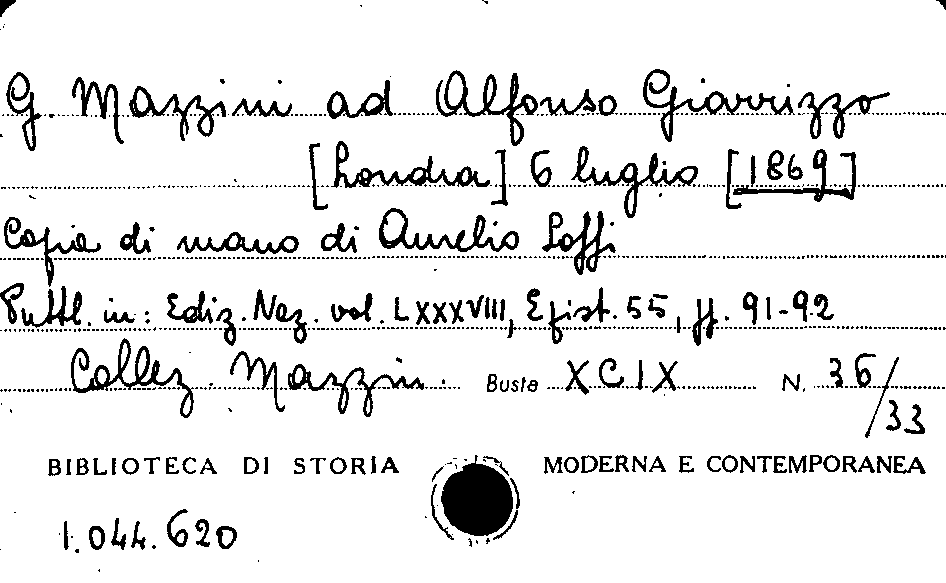 G. Mazzini ad Alfonso Giarrizzo
[Londra] 6 luglio [1869]
Copia di mano di Aurelio Saffi
Pubbl. in: Ediz. Naz. vol. LXXXVIII, Epist. 55, pp. 91-92
Collez. Mazzini. Busta XCIX N. 36/33
BIBLIOTECA DI STORIA MODERNA E CONTEMPORANEA
1.044.620